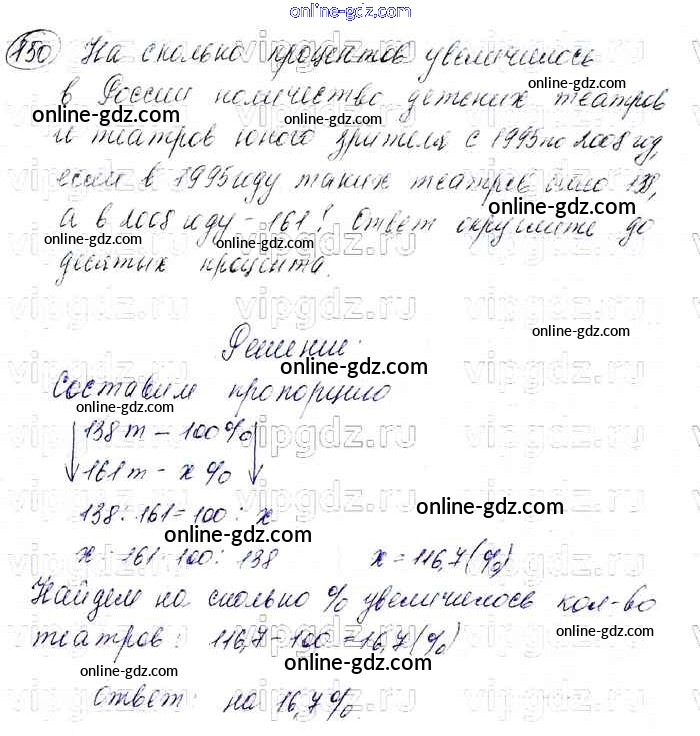 online-gdz.com
150 На сколько процентов увеличилось
online-gdz.com
в России количество детских театров
online-gdz.com
и театров юного зрителя с 1995 по 2008 год,
online-gdz.com
если в 1995 году таких театров было 138,
online-gdz.com
а в 2008 году - 161? Ответ округлите до
online-gdz.com
десятых процента.
vipgdz.ru vipgdz.ru vipgdz.ru
online-gdz.com
Решение:
online-gdz.com
Составим пропорцию
online-gdz.com
138 т – 100%
161 т – х %
138 : 161 = 100 : х
online-gdz.com
online-gdz.com
х = 161 · 100 : 138 х = 116,7 (%)
online-gdz.com
Найдем на сколько % увеличилось кол-во
театров: 116,7 – 100 = 16,7 (%)
online-gdz.com
online-gdz.com
Ответ: на 16,7%.
online-gdz.com